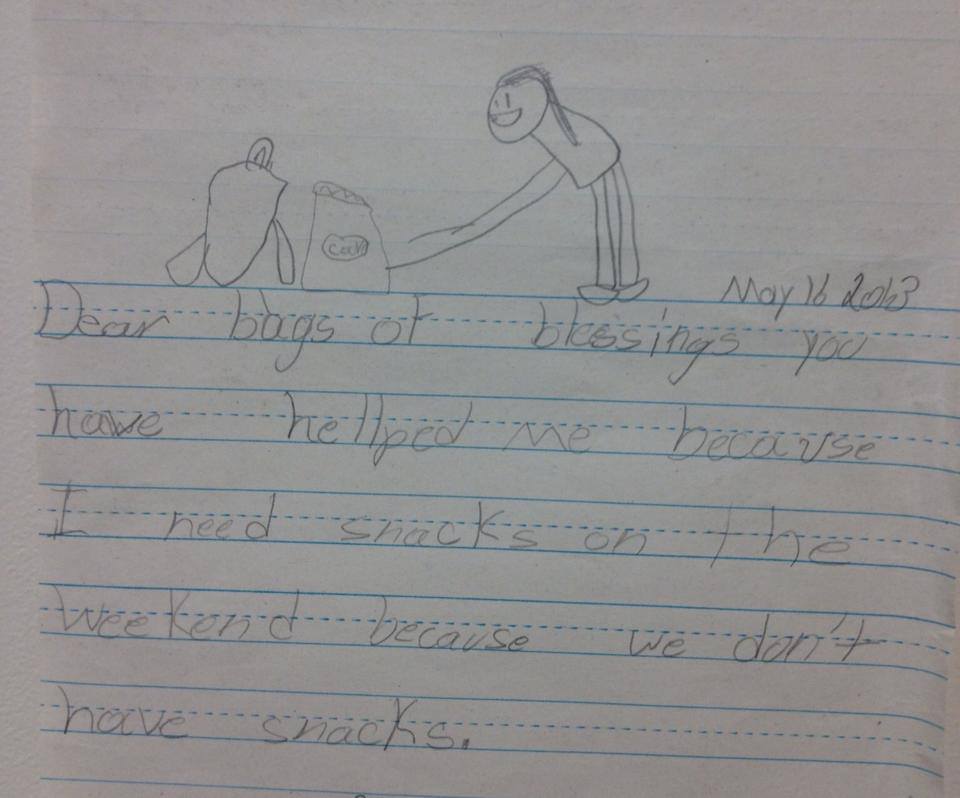 May 16 2013
Dear bags of blessings you
have hellped me because
I need snacks on the
weekend because we don't
have snacks.